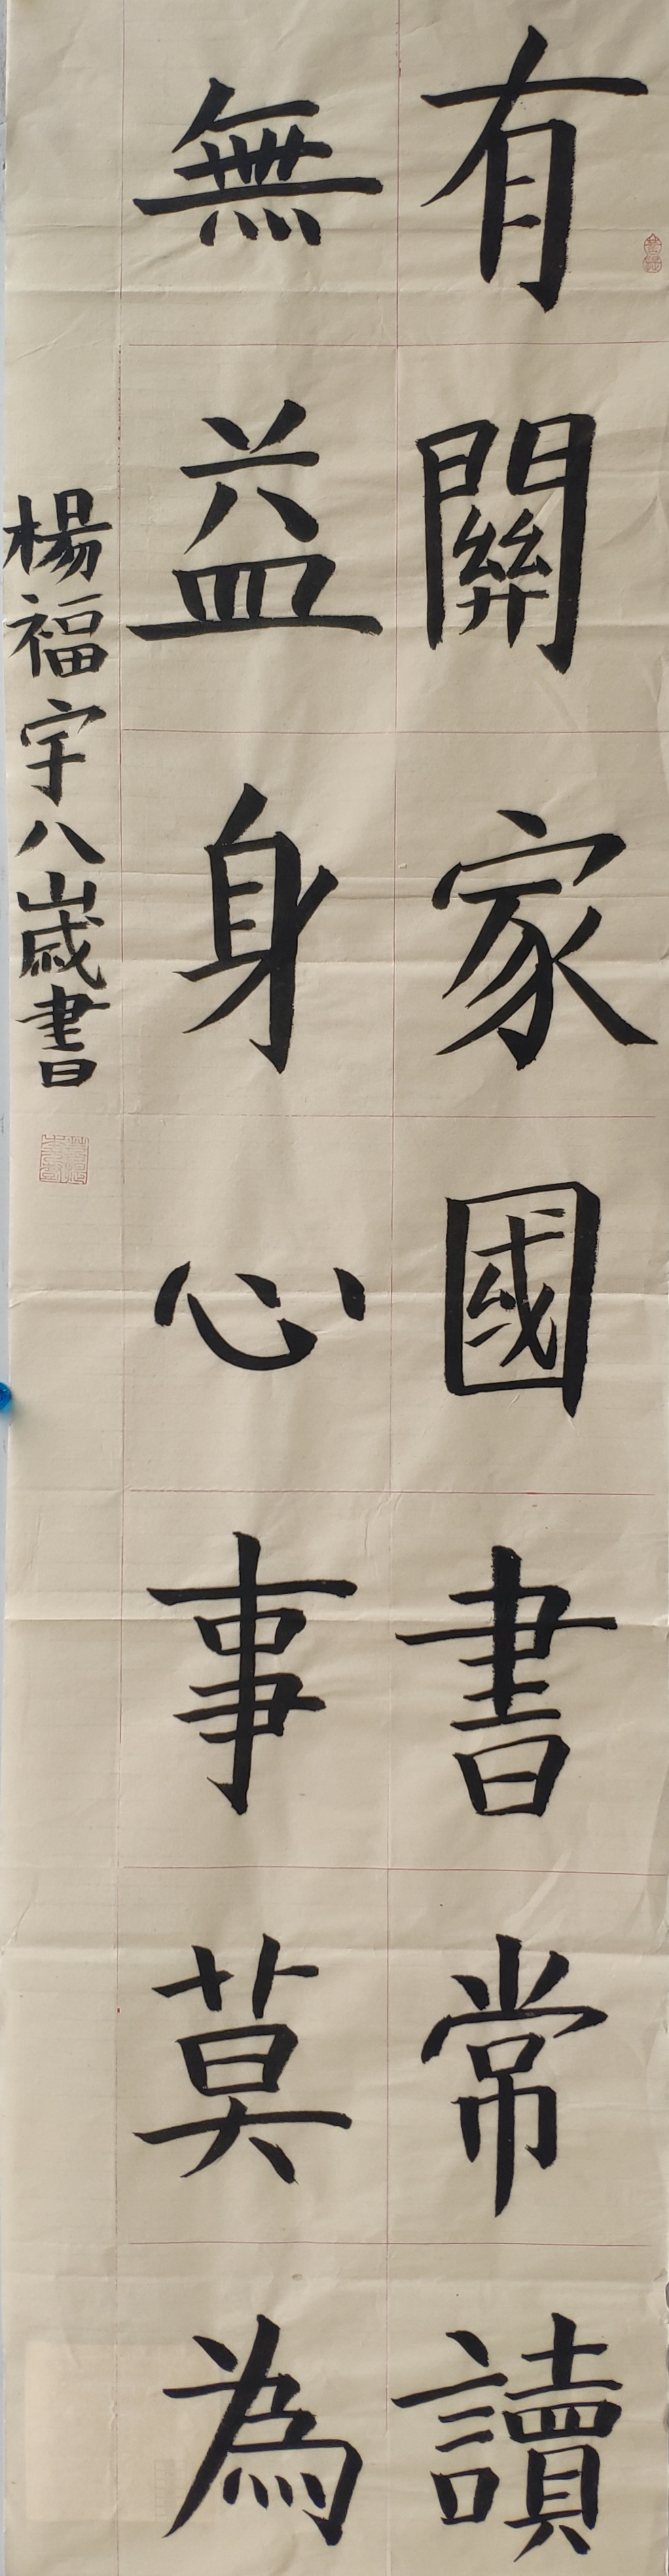 有關家國書常讀
無益身心事莫為
楊福宇八歲書